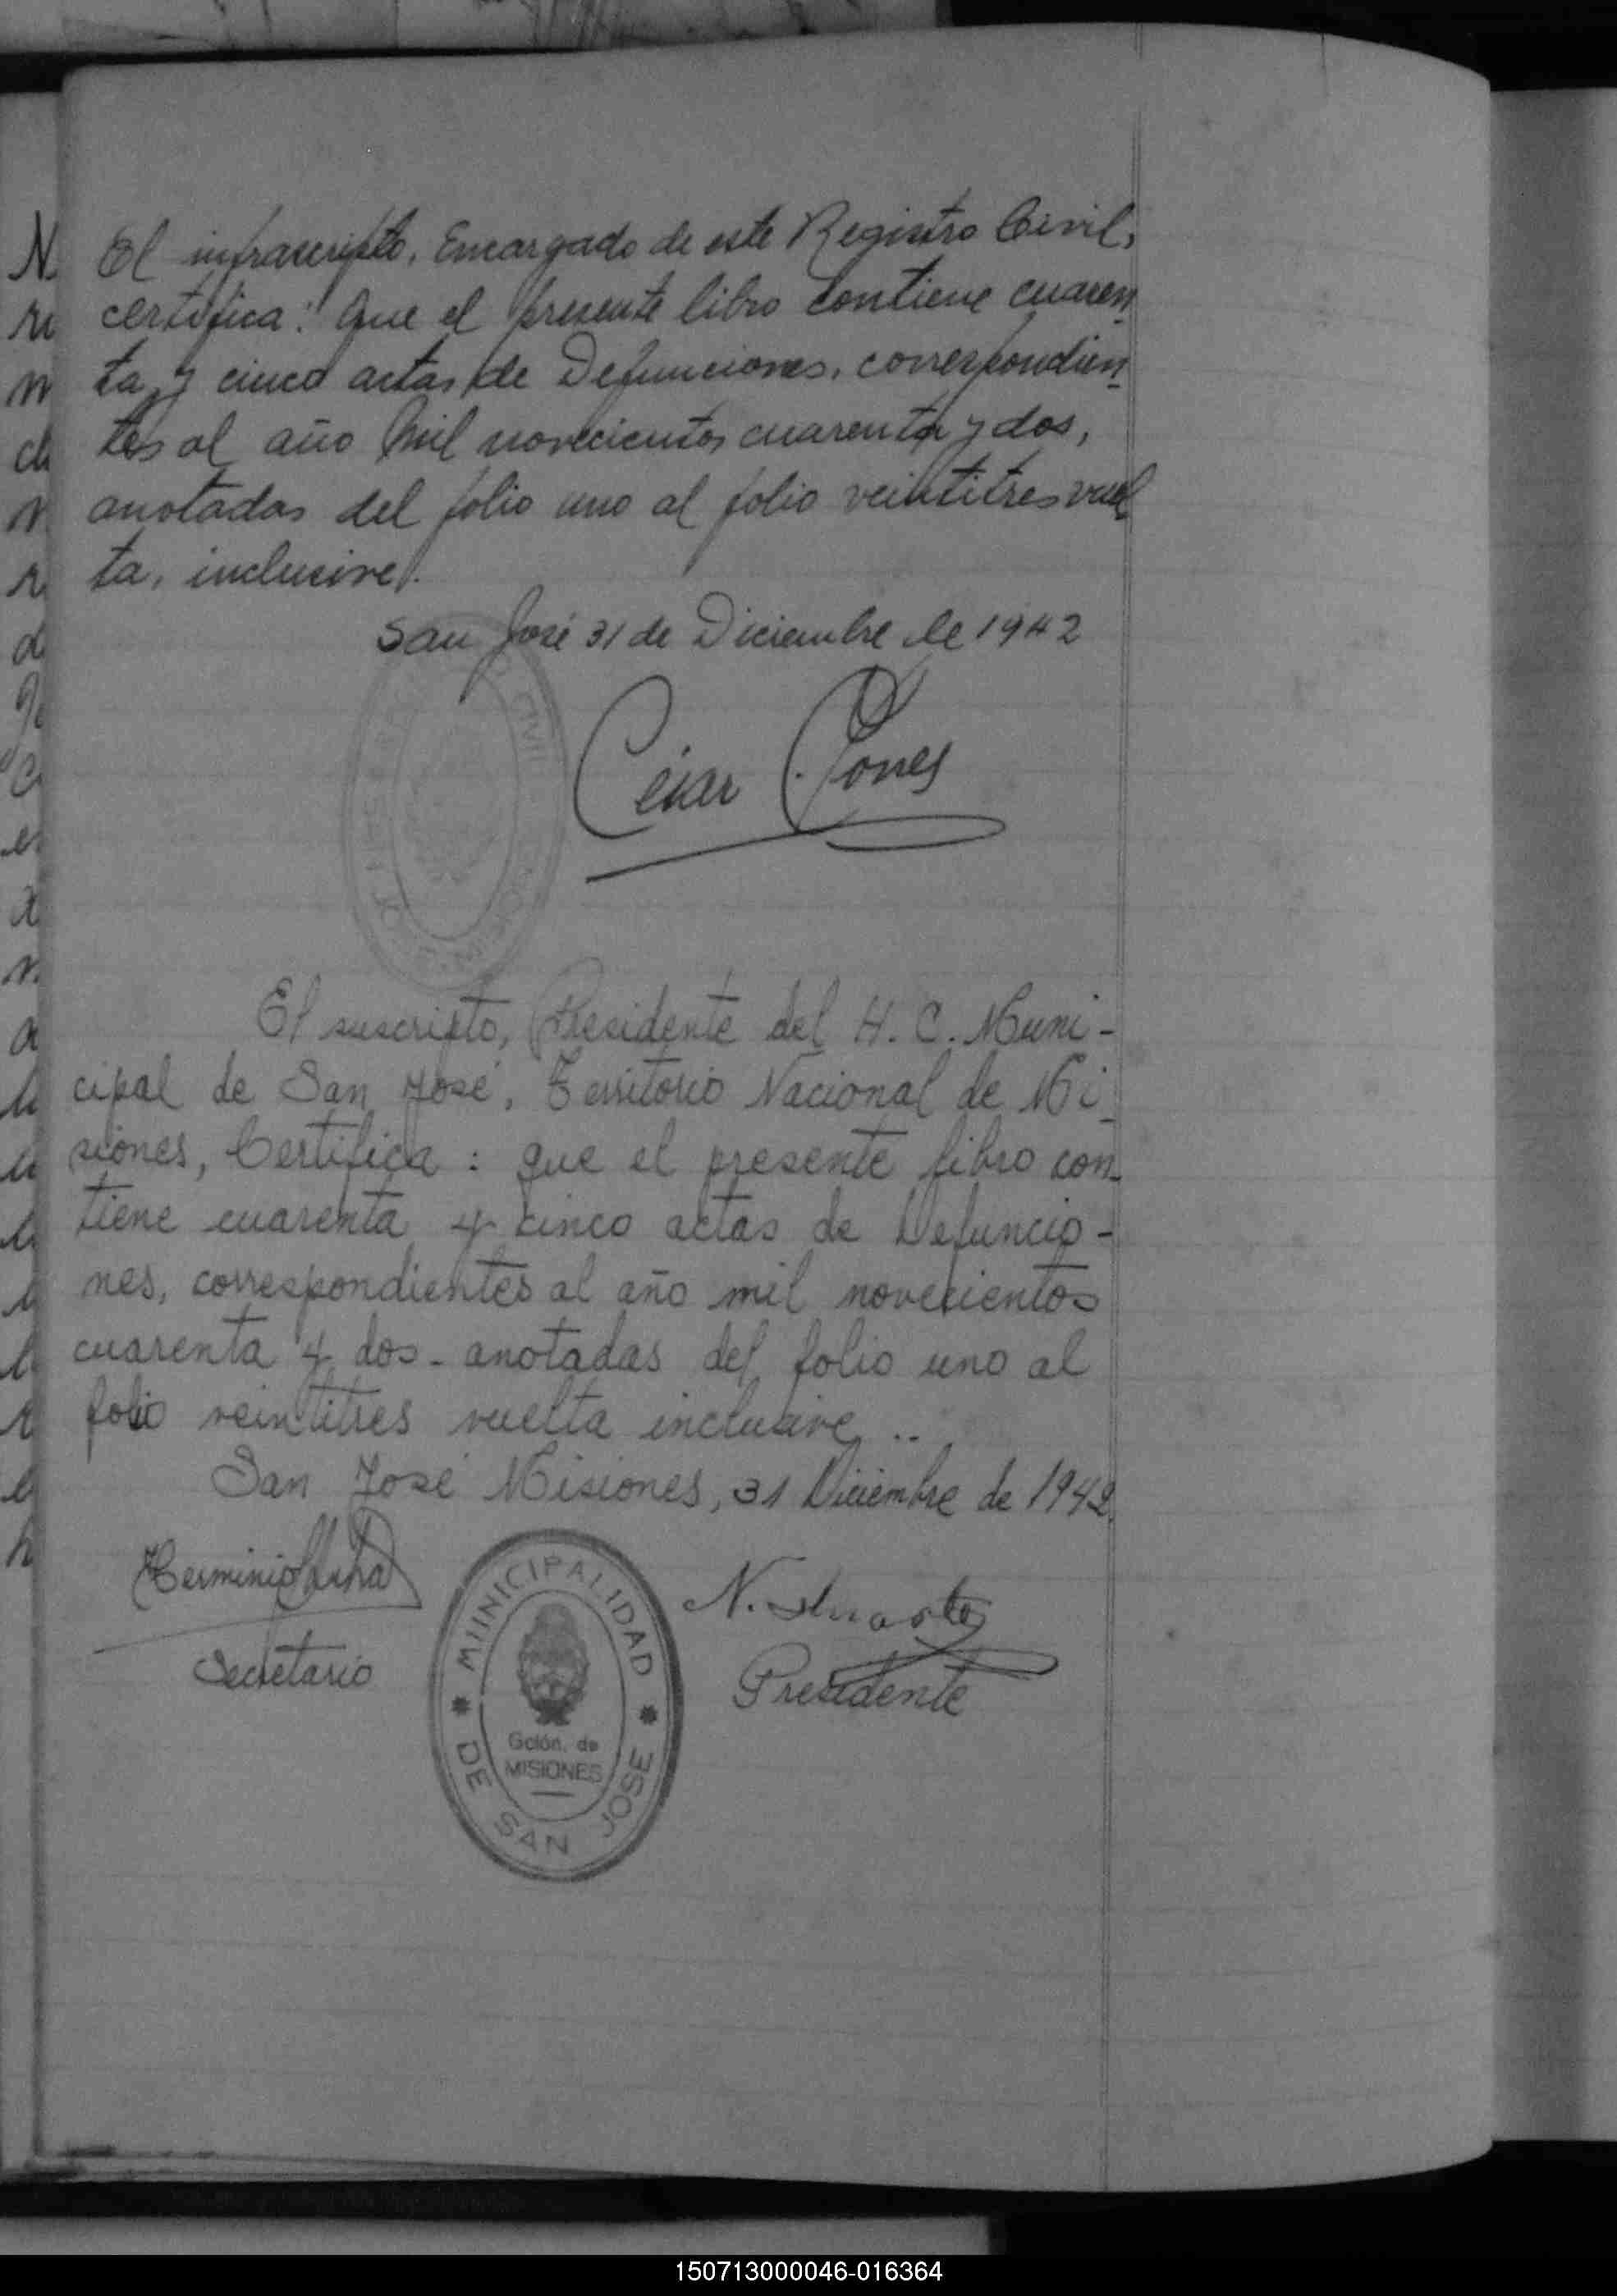 El infrascripto, Encargado de este Registro Civil,
certifica: Que el presente libro contiene cuaren
ta y cinco actas de Defunciones, correspondien
tes al año mil novecientos cuarenta y dos,
anotadas del folio uno al folio veintitres vuel
ta, inclusive.
San José 31 de Diciembre de 1942
César
El suscripto, Presidente del H. C. Muni-
cipal de San José, Territorio Nacional de Mi_
siones, Certifica: que el presente libro con_
tiene cuarenta y cinco actas de Defuncio-
nes, correspondientes al año mil novecientos
cuarenta y dos - anotadas del folio uno al
folio veintitres vuelta inclusive ..
San José Misiones, 31 Diciembre de 1942.
Herminio
Secretario
N. Duarte
Presidente
MUNICIPALIDAD
DE SAN JOSE
Gción. de
MISIONES
150713000046-016364